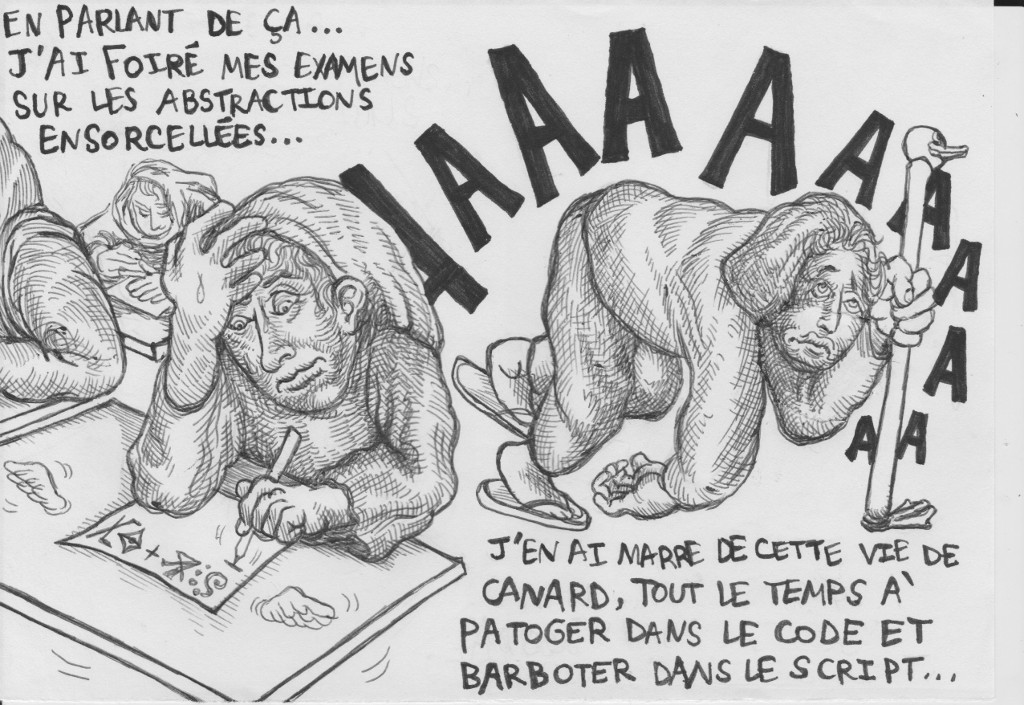 EN PARLANT DE ÇA...
J'AI FOIRÉ MES EXAMENS
SUR LES ABSTRACTIONS
ENSORCELLÉES...
AAAAAAAAAAA
J'EN AI MARRE DE CETTE VIE DE
CANARD, TOUT LE TEMPS À
PATOGER DANS LE CODE ET
BARBOTER DANS LE SCRIPT...